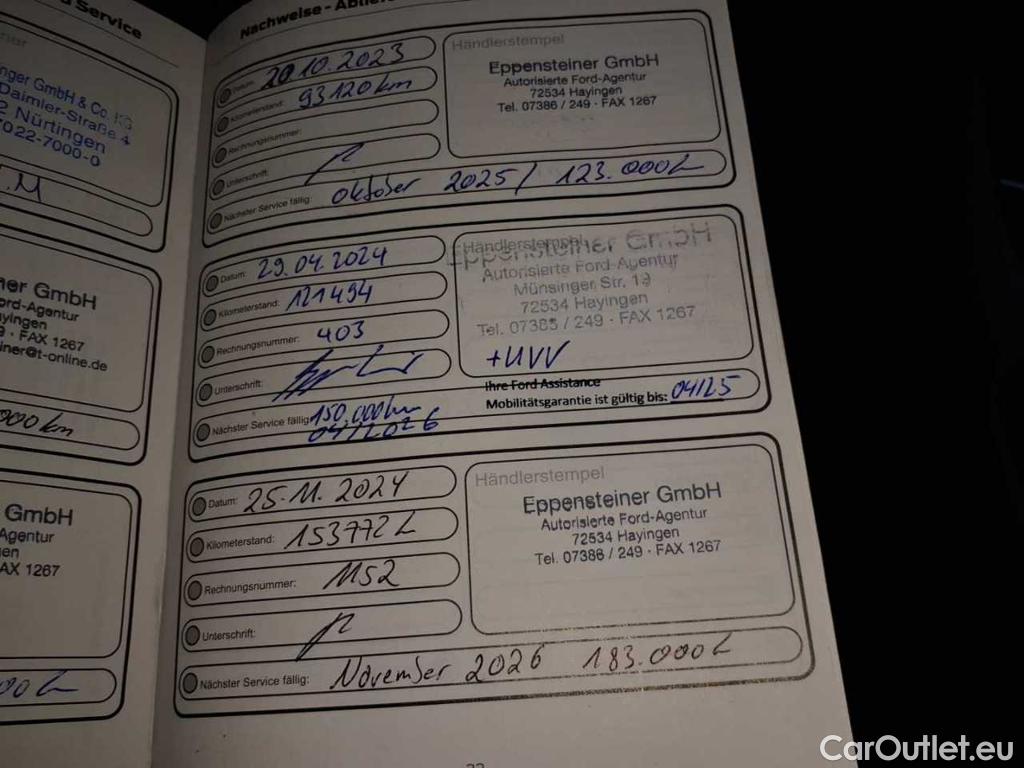 Service
Nachweise - Ablief
nger GmbH & Co. KG
Daimler-Straße 4
2 Nürtingen
7022-7000-0
er GmbH
ord-Agentur
ayingen
9 · FAX 1267
iner@t-online.de
000 km
GmbH
Agentur
en
AX 1267
Datum: 20.10.2023
Kilometerstand: 93120 km
Rechnungsnummer:
Unterschrift:
Nächster Service fällig: Oktober 2025 / 123.000
Händlerstempel
Eppensteiner GmbH
Autorisierte Ford-Agentur
72534 Hayingen
Tel. 07386 / 249 · FAX 1267
Datum: 29.04.2024
Kilometerstand: 121494
Rechnungsnummer: 403
Unterschrift:
Nächster Service fällig: 150.000 km
04/2026
Händlerstempel
Eppensteiner GmbH
Autorisierte Ford-Agentur
Münsinger Str. 19
72534 Hayingen
Tel. 07385 / 249 · FAX 1267
+UVV
Ihre Ford Assistance
Mobilitätsgarantie ist gültig bis: 04/25
Datum: 25.11.2024
Kilometerstand: 153772
Rechnungsnummer: 1152
Unterschrift:
Nächster Service fällig: November 2026 183.000
Händlerstempel
Eppensteiner GmbH
Autorisierte Ford-Agentur
72534 Hayingen
Tel. 07386 / 249 · FAX 1267
CarOutlet.eu